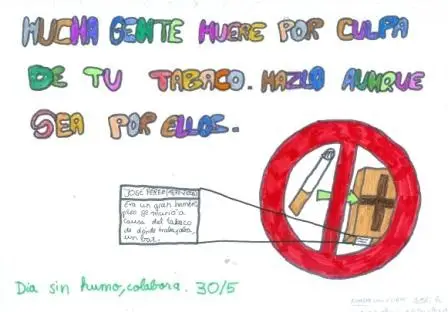 MUCHA GENTE MUERE POR CULPA
DE TU TABACO. HAZLO AUNQUE
SEA POR ELLOS.
JOSÉ PÉREZ
Era un gran hombre,
pero se murió a
causa del tabaco
de donde trabajaba,
un bar.
Dia sin humo, colabora. 30/5